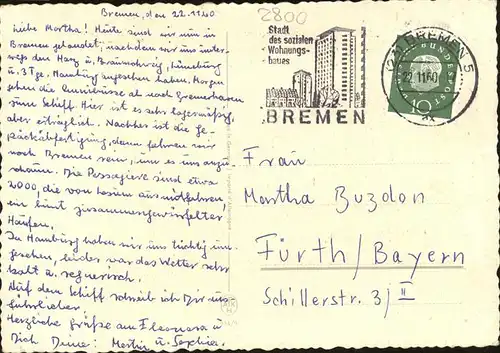 Bremen, den 22.11.60
Liebe Martha! Heute sind wir nun in
Bremen gelandet, nachdem wir uns unter-
wegs den Harz u. Braunschweig, Lüneburg
u. 3 Tge. Hamburg angesehen haben. Morgen
gehen die Omnibusse ab nach Bremerhaven
zum Schiff. Hier ist es sehr lagermäßig,
aber erträglich. Nachher ist die Ge-
päckabfertigung, dann fahren wir
nach Bremen rein, um es uns anzu-
schauen. Die Passagiere sind etwa
2000, die von hier aus mitfahren,
ein bunt zusammengewürfelter
Haufen.
In Hamburg haben wir uns tüchtig um-
gesehen, leider war das Wetter sehr
kalt u. regnerisch.
Auf dem Schiff schreib ich Dir aus-
führlicher.
Herzliche Grüße am Eleonora u.
Dich Deine: Martin u. Sophie.
2800
Stadt
des sozialen
Wohnungs-
baues
BREMEN
(23) BREMEN 5
22.11.60
DEUTSCHE BUNDESPOST
10
Frau
Martha Buzdon
Fürth/Bayern
Schillerstr. 3/II